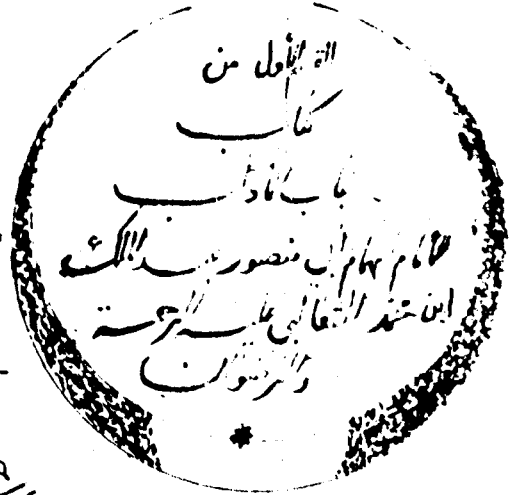 الأول من
كتاب
لباب الآداب
للإمام الهمام أبى منصور عبد الملك
ابن محمد الثعالبى عليه الرحمة
والرضوان